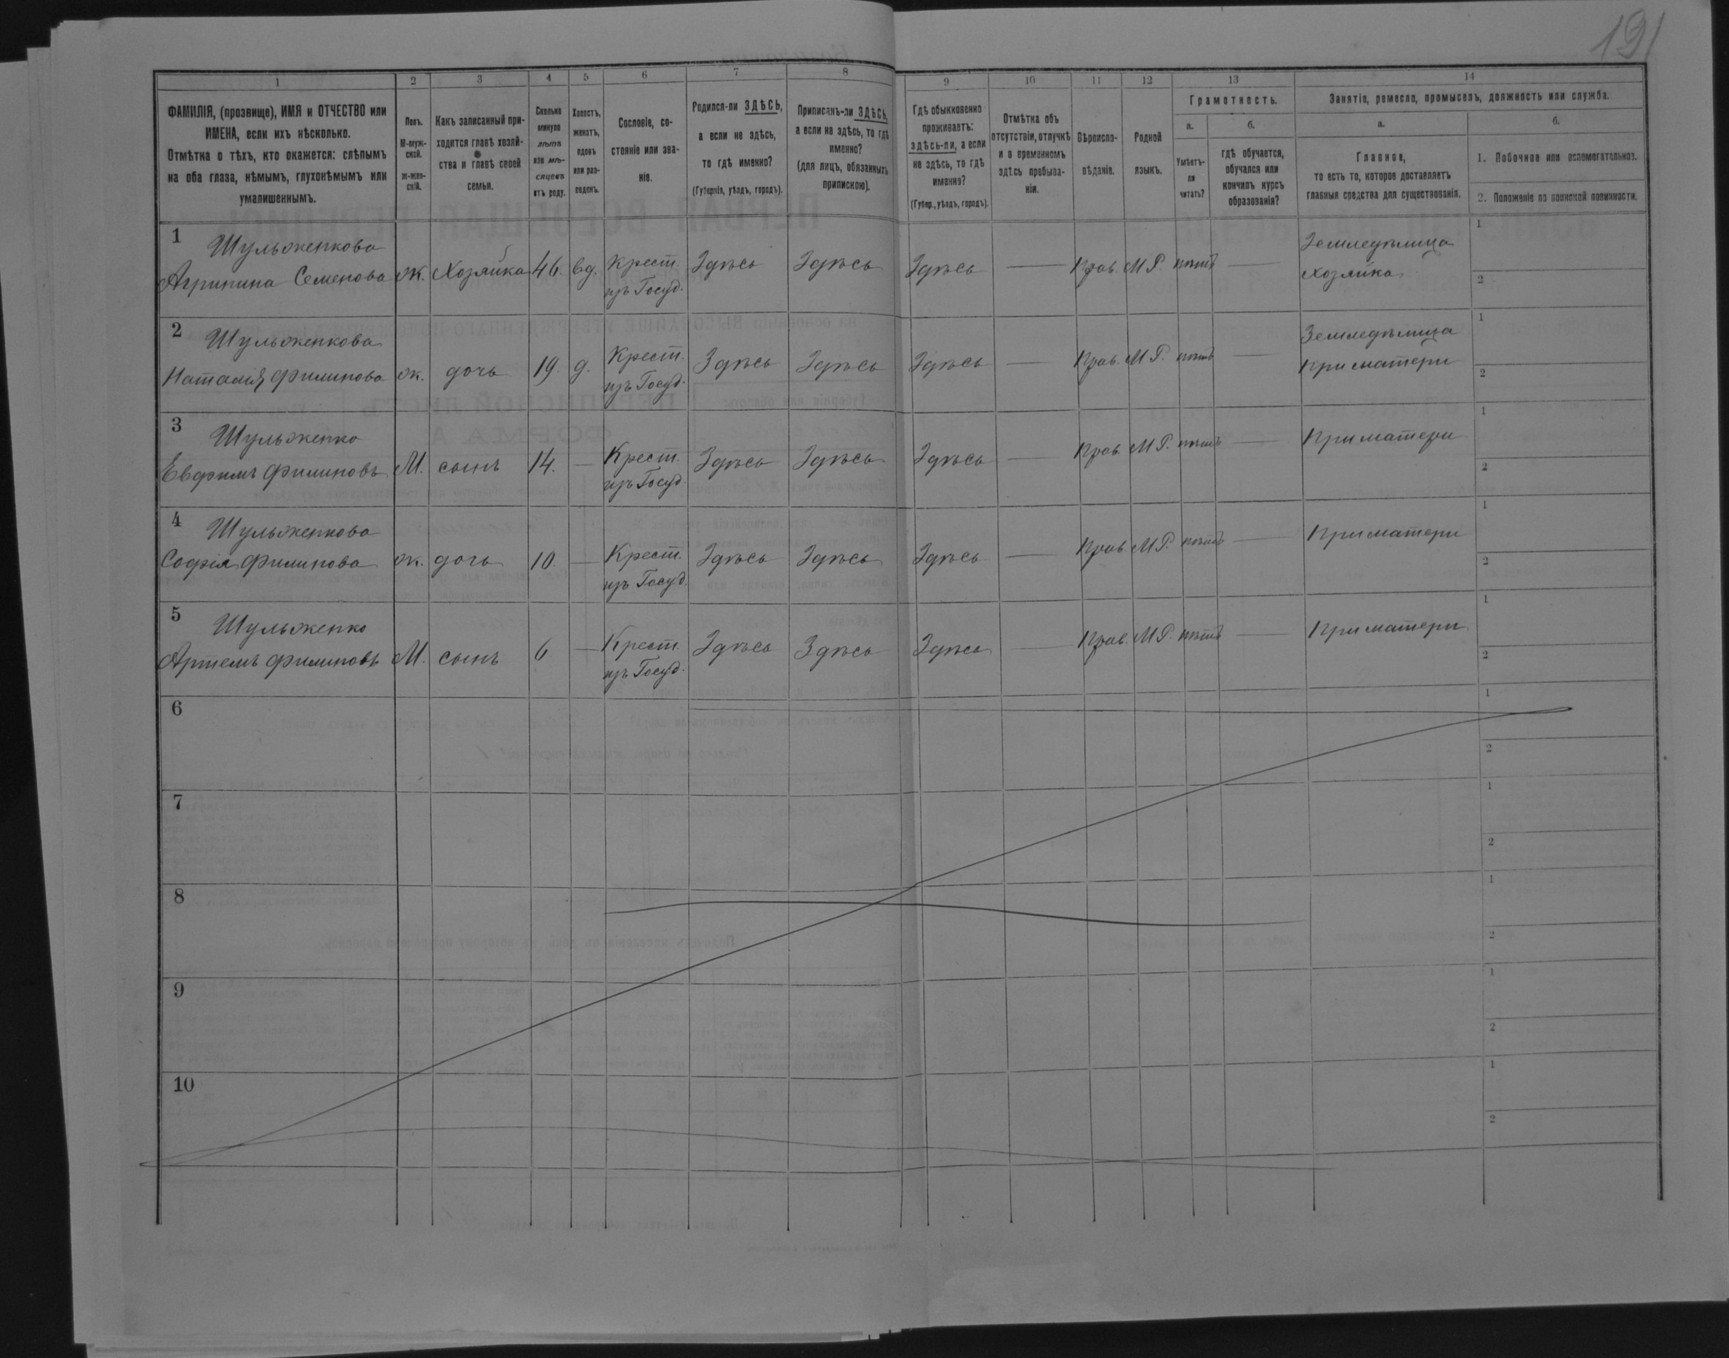 191
1 2 3 4 5 6 7 8 9 10 11 12 13 14
ФАМИЛІЯ, (прозвище), ИМЯ и ОТЧЕСТВО или
ИМЕНА, если ихъ нѣсколько.
Отмѣтка о тѣхъ, кто окажется: слѣпымъ
на оба глаза, нѣмымъ, глухонѣмымъ или
умалишеннымъ.
Полъ.
М-муж-
ской.
Ж-жен-
скій.
Какъ записанный при-
ходится главѣ хозяй-
ства и главѣ своей
семьи.
Сколько
минуло
лѣтъ
или мѣ-
сяцевъ
отъ роду.
Холостъ,
женатъ,
вдовъ
или раз-
веденъ.
Сословіе, со-
стояніе или зва-
ніе.
Родился-ли ЗДѢСЬ,
а если не здѣсь,
то гдѣ именно?
(Губернія, уѣздъ, городъ).
Приписанъ-ли ЗДѢСЬ,
а если не здѣсь, то гдѣ
именно?
(для лицъ, обязанныхъ
припискою).
Гдѣ обыкновенно
проживаетъ:
здѣсь-ли, а если
не здѣсь, то гдѣ
именно?
(Губер., уѣздъ, городъ).
Отмѣтка объ
отсутствіи, отлучкѣ
и о временномъ
здѣсь пребыва-
ніи.
Вѣроиспо-
вѣданіе.
Родной
языкъ.
Грамотность.
а.
Умѣетъ-
ли
читать?
б.
гдѣ обучается,
обучался или
кончилъ курсъ
образованія?
Занятіе, ремесло, промыселъ, должность или служба.
а.
Главное,
то есть то, которое доставляетъ
главныя средства для существованія.
б.
1. Побочное или вспомогательное.
2. Положеніе по воинской повинности.
1 Шульженкова Земледѣлица 1
Агрипина Семенова ж. Хозяйка 46 вд. Крест. Здѣсь Здѣсь Здѣсь — Прав. М.Р. нѣтъ — Хозяйка 2
изъ Госуд.
2 Шульженкова Земледѣлица 1
Наталія Филипова ж. дочь 19. д. Крест. Здѣсь Здѣсь Здѣсь — Прав. М.Р. нѣтъ — При матери 2
изъ Госуд.
3 Шульженко 1
Евфимъ Филиповъ М. сынъ 14. — Крест. Здѣсь Здѣсь Здѣсь — Прав. М.Р. нѣтъ — При матери 2
изъ Госуд.
4 Шульженкова 1
Софія Филипова ж. дочь 10 — Крест. Здѣсь Здѣсь Здѣсь — Прав. М.Р. нѣтъ — При матери 2
изъ Госуд.
5 Шульженко 1
Артемъ Филиповъ М. сынъ 6 — Крест. Здѣсь Здѣсь Здѣсь — Прав. М.Р. нѣтъ — При матери 2
изъ Госуд.
6 1
2
7 1
2
8 1
2
9 1
2
10 1
2